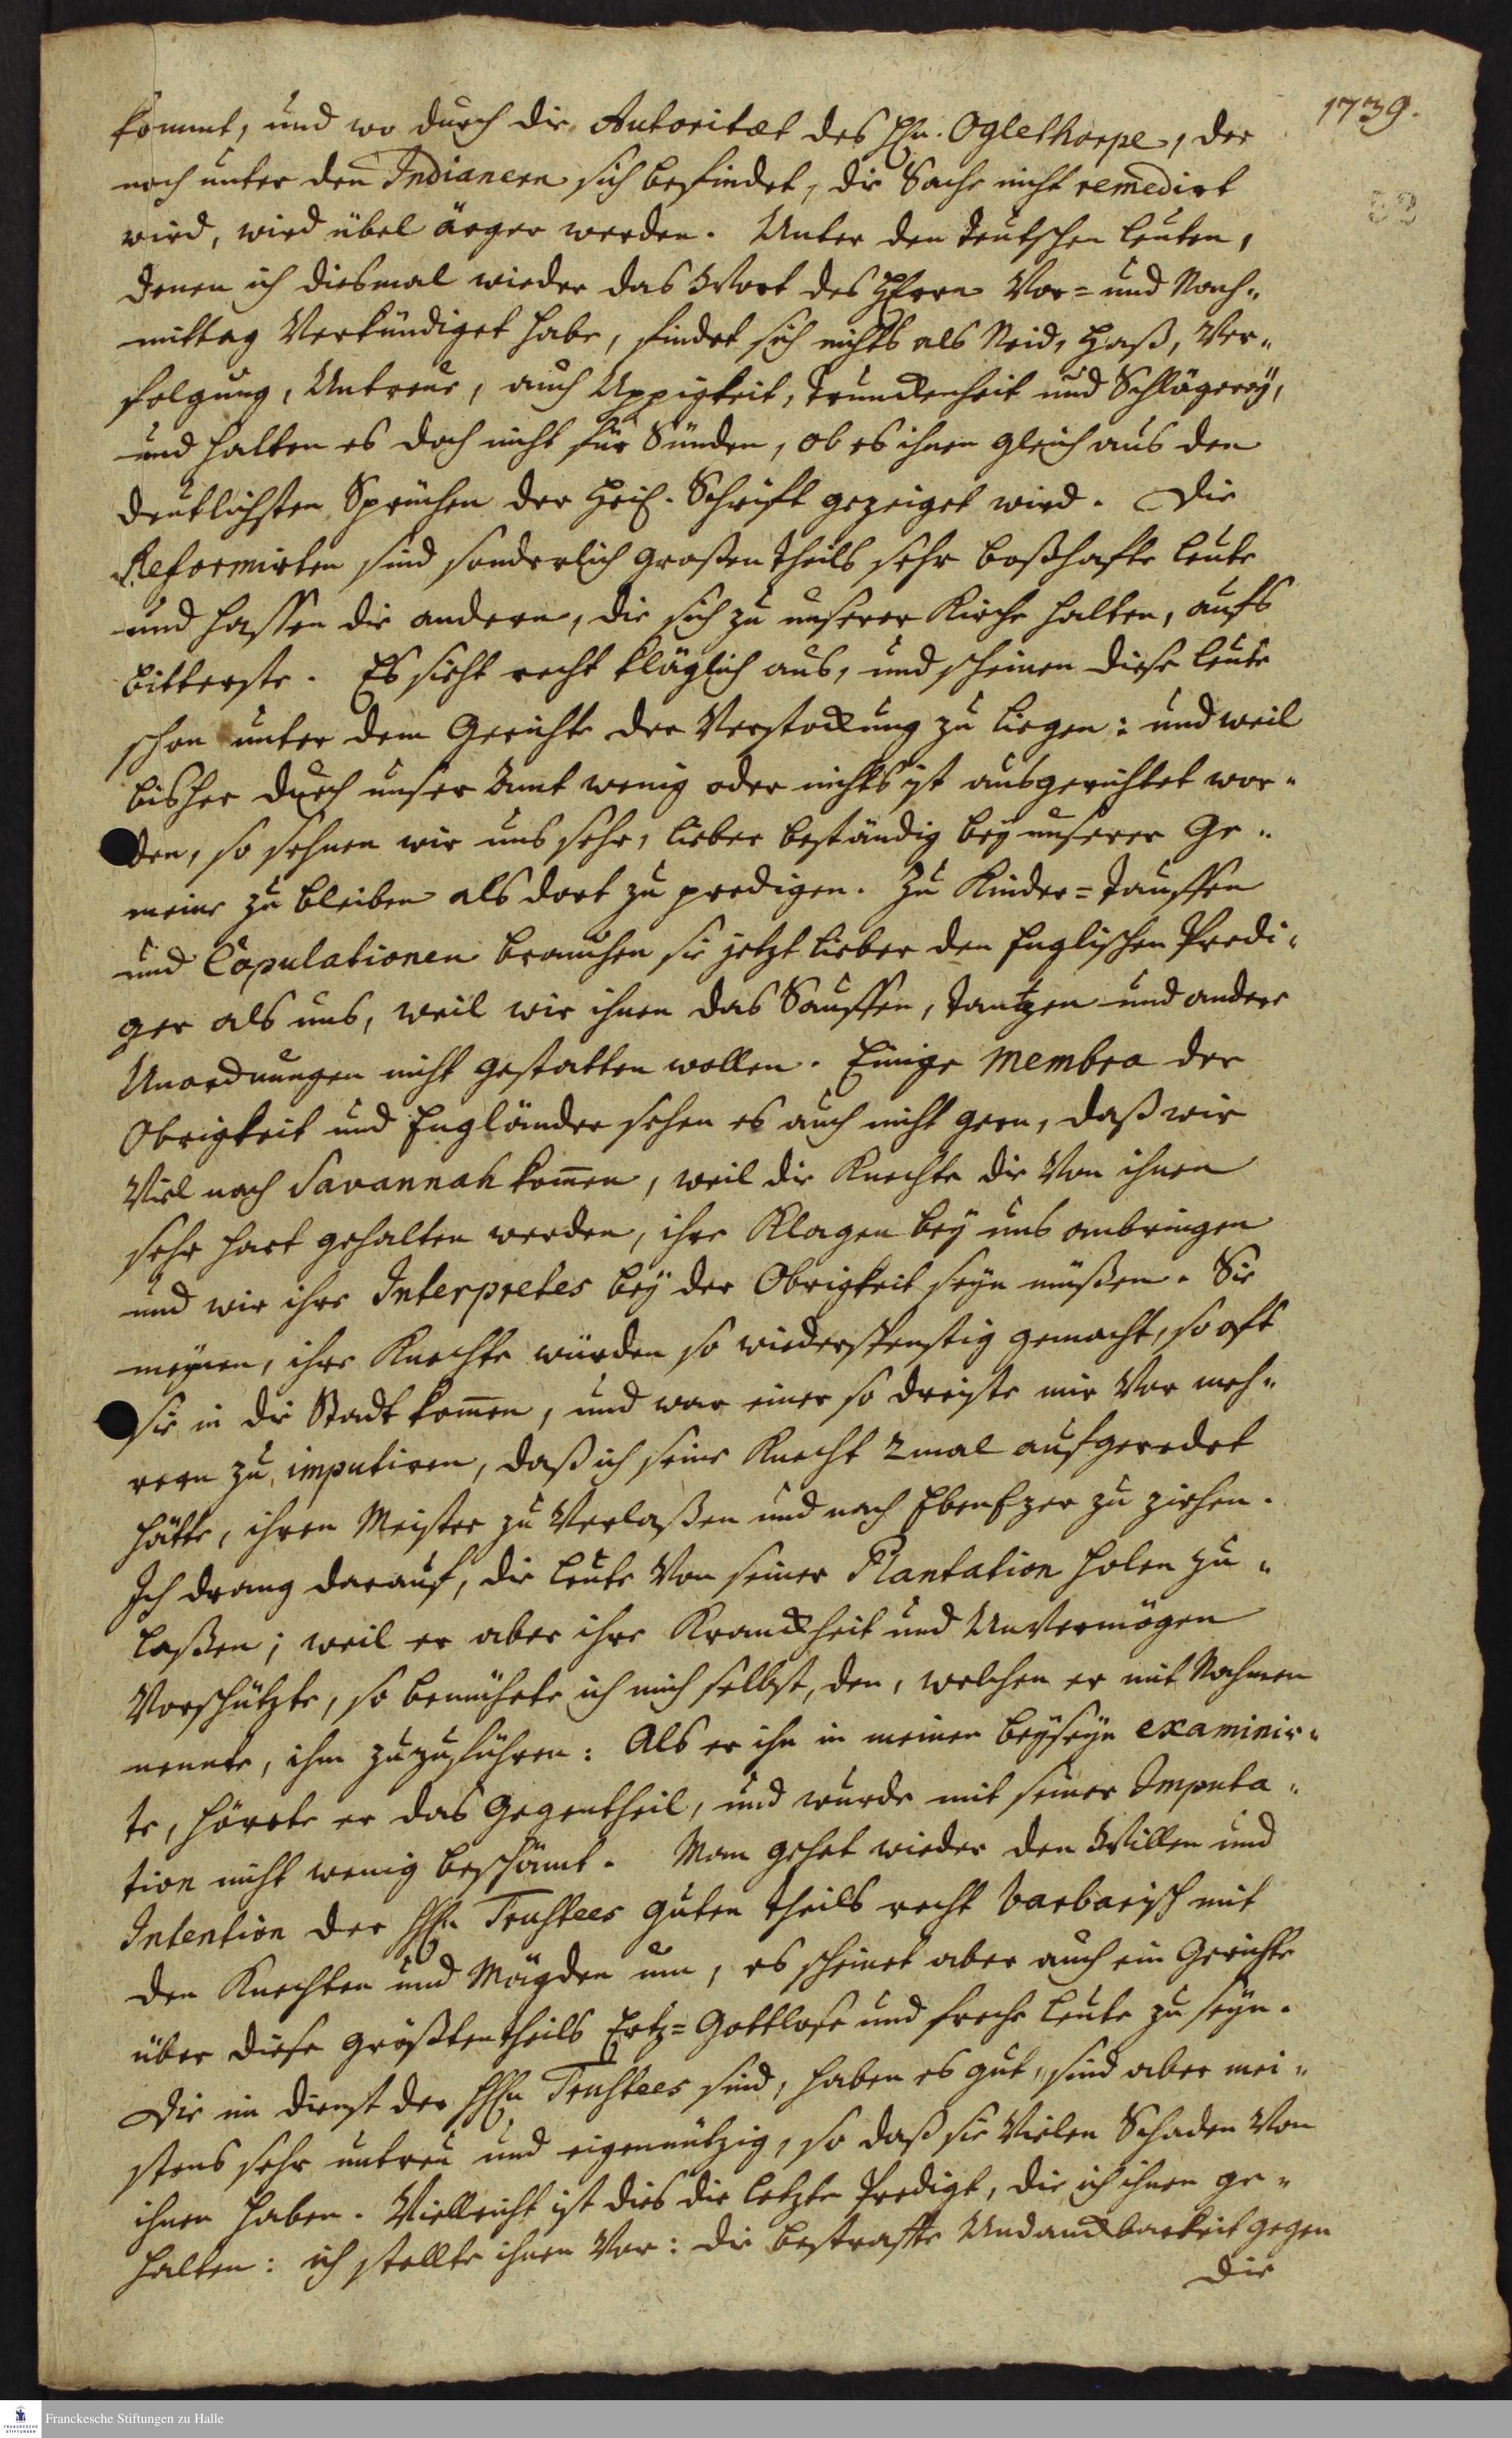 1739.
52
kommt, und wo durch die Autoritæt des Hn. Oglethorpe, der
noch unter den Indianern sich befindet, die Sache nicht remedirt
wird, wird übel ärger werden. Unter den teutschen Leuten,
denen ich diesmal wieder das Wort des HErrn Vor= und Nach"
mittag Verkündiget habe, findet sich nichts als Neid, Haß, Ver"
folgung, Untreue, auch Uppigkeit, Trunckenheit und Schlägerey,
und halten es doch nicht für Sünden, ob es ihnen gleich aus den
deutlichsten Sprüchen der Heil. Schrift gezeiget wird. Die
Reformirten sind sonderlich großentheils sehr boßhafte Leute
und hassen die andern, die sich zu unserer Kirche halten, aufs
bitterste. Es sieht recht kläglich aus, und scheinen diese Leute
schon unter dem Gerichte der Verstockung zu liegen: und weil
bisher durch unser Amt wenig oder nichts ist ausgerichtet wor"
den, so sehnen wir uns sehr, lieber beständig bey unserer Ge"
meine zu bleiben als dort zu predigen. Zu Kinder=Tauffen
und Copulationen brauchen sie jetzt lieber den Englischen Predi"
ger als uns, weil wir ihnen das Sauffen, Tantzen und andere
Unordnungen nicht gestatten wollen. Einige Membra der
Obrigkeit und Engländer sehen es auch nicht gern, daß wir
Viel nach Savannah kom̄en, weil die Knechte die Von ihnen
sehr hart gehalten werden, ihre Klagen bey uns anbringen
und wir ihre Interpretes bey der Obrigkeit seyn müßen. Sie
meynen, ihre Knechte würden so wiederspenstig gemacht, so oft
sie in die Stadt kom̄en, und war einer so dreiste mir Vor meh"
rern zu imputiren, daß ich seine Knecht 2mal aufgeredet
hätte, ihren Meister zu Verlaßen und nach EbenEzer zu ziehen.
Ich drang darauf, die Leute Von seiner Plantation holen zu"
laßen; weil er aber ihre Kranckheit und UnVermögen
Vorschützte, so bemühete ich mich selbst, den, welchen er mit Nahmen
nennte, ihm zuzuführen: Als er ihn in meinen beyseyn examinir"
te, hörete er das Gegentheil, und wurde mit seiner Imputa"
tion nicht wenig beschämt. Man gehet wieder den Willen und
Intention der HHn Trustees guten theils recht barbarisch mit
den Knechten und Mägden um, es scheinet aber auch ein Gerichte
über diese größtentheils Ertz=Gottlose und freche Leute zu seyn.
Die im dienst der HHn Trustees sind, haben es gut, sind aber mei"
stens sehr untreu und eigennützig, so daß sie Vielen Schaden Von
ihnen haben. Vielleicht ist dies die letzte Predigt, die ich ihnen ge"
halten: ich stellte ihnen Vor: die bestraffte Undanckbarkeit gegen
die
Franckesche Stiftungen zu Halle
FRANCKESCHE
STIFTUNGEN